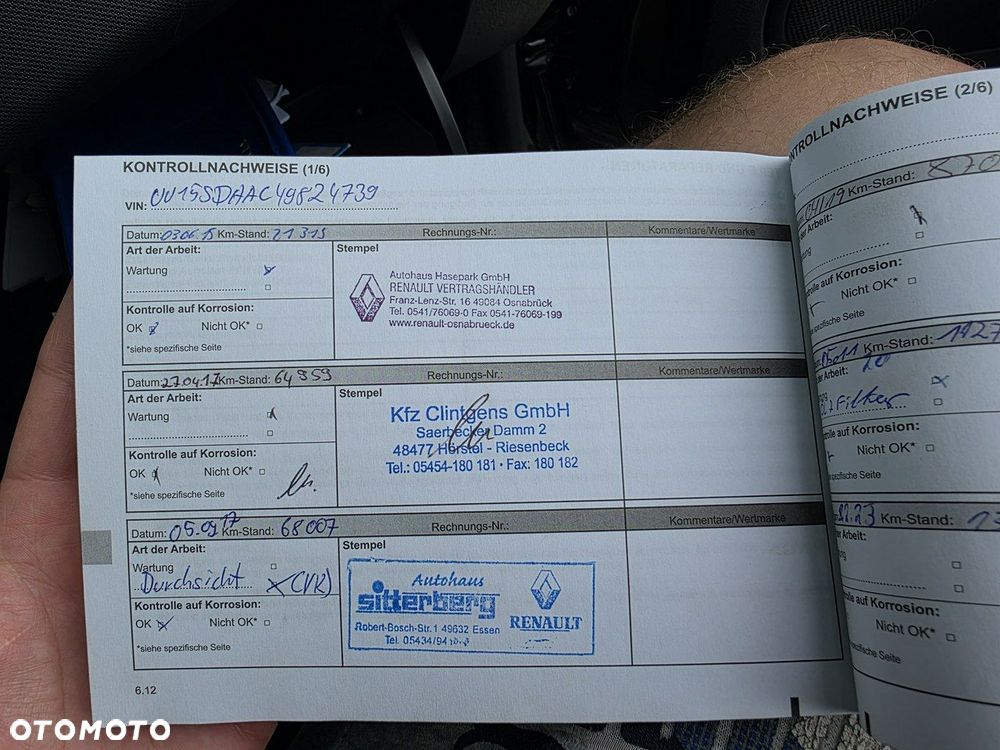 KONTROLLNACHWEISE (1/6)
VIN: UU15SDAAC49824739
Datum: 03.06.15 Km-Stand: 21313 Rechnungs-Nr.: Kommentare/Wertmarke
Art der Arbeit:
Wartung
Kontrolle auf Korrosion:
OK Nicht OK*
*siehe spezifische Seite
Stempel
Autohaus Hasepark GmbH
RENAULT VERTRAGSHÄNDLER
Franz-Lenz-Str. 16 49084 Osnabrück
Tel. 0541/76069-0 Fax 0541-76069-199
www.renault-osnabrueck.de
Datum: 27.04.17 Km-Stand: 64959 Rechnungs-Nr.: Kommentare/Wertmarke
Art der Arbeit:
Wartung
Kontrolle auf Korrosion:
OK Nicht OK*
*siehe spezifische Seite
Stempel
Kfz Clintgens GmbH
Saerbecker Damm 2
48477 Hörstel - Riesenbeck
Tel.: 05454-180 181 • Fax: 180 182
Datum: 05.09.17 Km-Stand: 68007 Rechnungs-Nr.: Kommentare/Wertmarke
Art der Arbeit:
Wartung
Durchsicht (VK)
Kontrolle auf Korrosion:
OK Nicht OK*
*siehe spezifische Seite
Stempel
Autohaus
sitterberg
Robert-Bosch-Str. 1 49632 Essen
Tel. 05434/94
RENAULT
6.12
NTROLLNACHWEISE (2/6)
04/19 Km-Stand: 870
der Arbeit:
ntrolle auf Korrosion:
Nicht OK*
spezifische Seite
Km-Stand: 1127
der Arbeit:
Filter
rolle auf Korrosion:
Nicht OK*
spezifische Seite
.23 Km-Stand: 1
der Arbeit:
auf Korrosion:
Nicht OK*
spezifische Seite
OTOMOTO